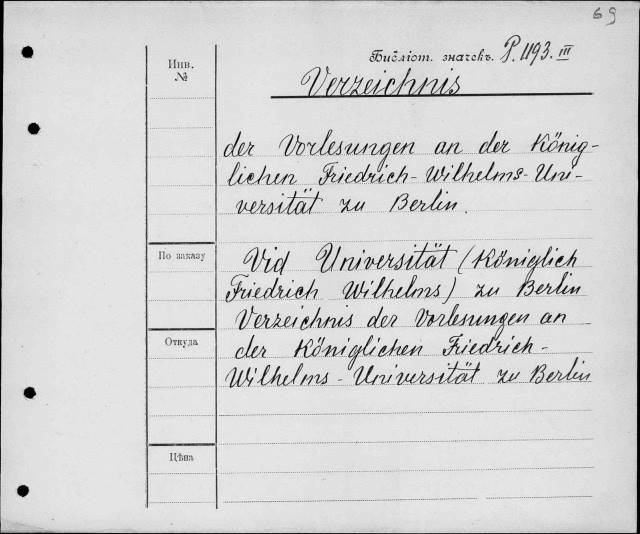 69
Инв.
№
Библіот. значекъ. P. 1193. III
Verzeichnis
der Vorlesungen an der König-
lichen Friedrich-Wilhelms-Uni-
versität zu Berlin.
По заказу
Vid Universität (Königlich
Friedrich Wilhelms) zu Berlin
Verzeichnis der Vorlesungen an
Откуда
der Königlichen Friedrich-
Wilhelms-Universität zu Berlin
Цѣна